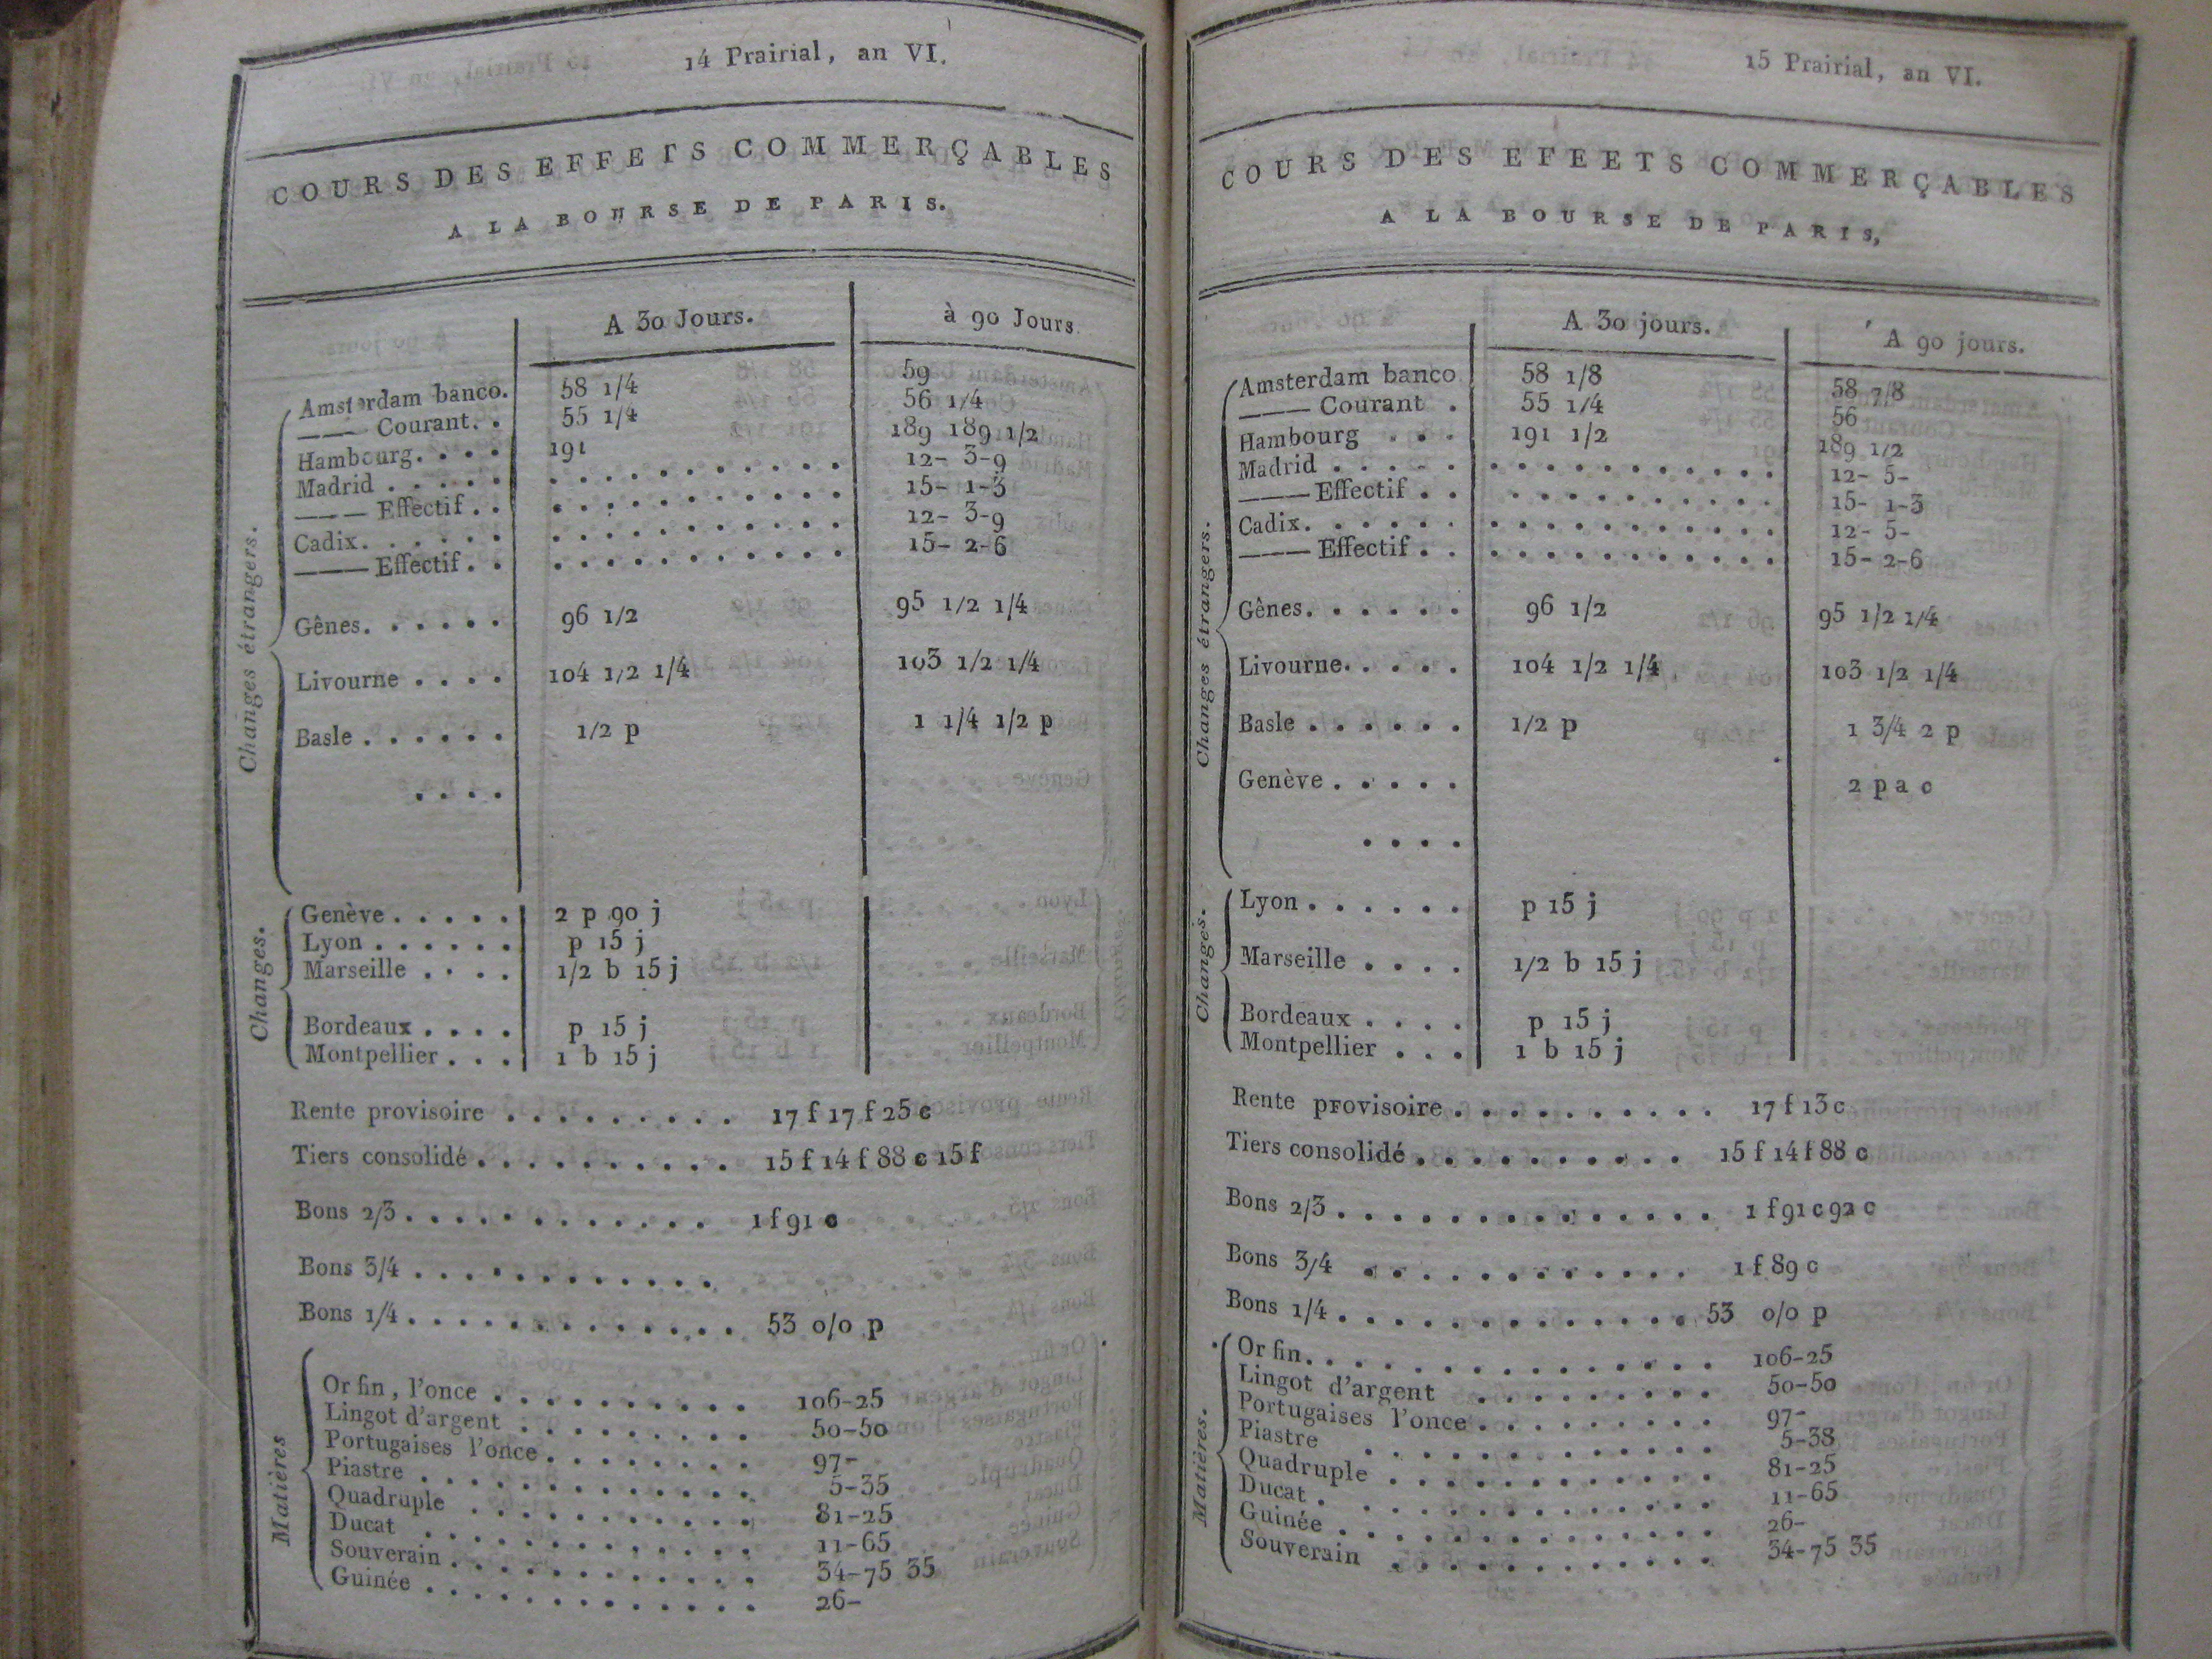 14 Prairial, an VI.
COURS DES EFFETS COMMERÇABLES
A LA BOURSE DE PARIS.
A 30 Jours. à 90 Jours.
Changes étrangers.
Amsterdam banco. 58 1/4 59
——— Courant. . 55 1/4 56 1/4
Hambourg. . . . 191 189 189 1/2
Madrid . . . . . . . . . . . . . . . 12- 3-9
——— Effectif . . . . . . . . . . . . 15- 1-3
Cadix. . . . . . . . . . . . . . . . 12- 3-9
——— Effectif . . . . . . . . . . . . 15- 2-6
Gênes. . . . . . 96 1/2 95 1/2 1/4
Livourne . . . . 104 1/2 1/4 103 1/2 1/4
Basle . . . . . . 1/2 p 1 1/4 1/2 p
. . . .
Changes.
Genève . . . . . 2 p 90 j
Lyon . . . . . . p 15 j
Marseille . . . . 1/2 b 15 j
Bordeaux . . . . p 15 j
Montpellier . . . 1 b 15 j
Rente provisoire . . . . . . . . . 17 f 17 f 25 c
Tiers consolidé . . . . . . . . . . 15 f 14 f 88 c 15 f
Bons 2/3 . . . . . . . . . . . . 1 f 91 c
Bons 3/4 . . . . . . . . . . . .
Bons 1/4 . . . . . . . . . . . . . 53 o/o p
Matières
Or fin, l'once . . . . . . . . . . 106-25
Lingot d'argent . . . . . . . . . 50-50
Portugaises l'once . . . . . . . . 97-
Piastre . . . . . . . . . . . . . 5-35
Quadruple . . . . . . . . . . . 81-25
Ducat . . . . . . . . . . . . . 11-65
Souverain . . . . . . . . . . . . 34-75 35
Guinée . . . . . . . . . . . . . 26-
15 Prairial, an VI.
COURS DES EFEETS COMMERÇABLES
A LA BOURSE DE PARIS,
A 30 jours. A 90 jours.
Changes étrangers.
Amsterdam banco 58 1/8 58 7/8
——— Courant . 55 1/4 56
Hambourg . . . 191 1/2 189 1/2
Madrid . . . . . . . . . . . . . . . 12- 5-
——— Effectif . . . . . . . . . . . . 15- 1-3
Cadix. . . . . . . . . . . . . . . . 12- 5-
——— Effectif . . . . . . . . . . . . 15- 2-6
Gênes. . . . . . 96 1/2 95 1/2 1/4
Livourne. . . . . 104 1/2 1/4 103 1/2 1/4
Basle . . . . . . 1/2 p 1 3/4 2 p
Genève . . . . . 2 p a c
. . . .
Changes.
Lyon . . . . . . p 15 j
Marseille . . . . 1/2 b 15 j
Bordeaux . . . . p 15 j
Montpellier . . . 1 b 15 j
Rente provisoire . . . . . . . . . . 17 f 13 c
Tiers consolidé . . . . . . . . . . 15 f 14 f 88 c
Bons 2/3 . . . . . . . . . . . . . . 1 f 91 c 92 c
Bons 3/4 . . . . . . . . . . . . 1 f 89 c
Bons 1/4 . . . . . . . . . . . . . 53 o/o p
Matières.
Or fin. . . . . . . . . . . . . . . 106-25
Lingot d'argent . . . . . . . . . 50-50
Portugaises l'once . . . . . . . . . 97-
Piastre . . . . . . . . . . . . . 5-38
Quadruple . . . . . . . . . . . . 81-25
Ducat . . . . . . . . . . . . . . 11-65
Guinée . . . . . . . . . . . . . . 26-
Souverain . . . . . . . . . . . . 34-75 35